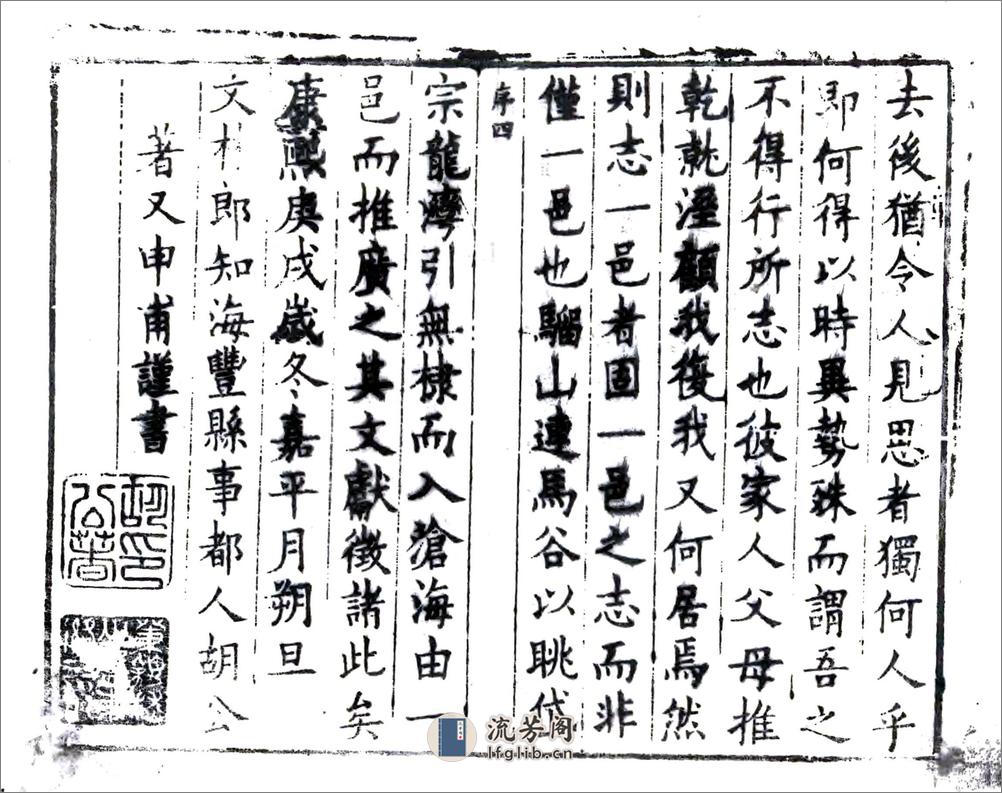 去後猶令人見思者獨何人乎
即何得以時異勢殊而謂吾之
不得行所志也彼家人父母推
乾就溼顧我復我又何居焉然
則志一邑者固一邑之志而非
僅一邑也騮山連馬谷以眺岱
序四
宗龍灣引無棣而入滄海由一
邑而推廣之其文獻徵諸此矣
康熙庚戌歲冬嘉平月朔旦
文林郎知海豐縣事都人胡公
著又申甫謹書
胡公著印
流芳阁
lfglib.cn